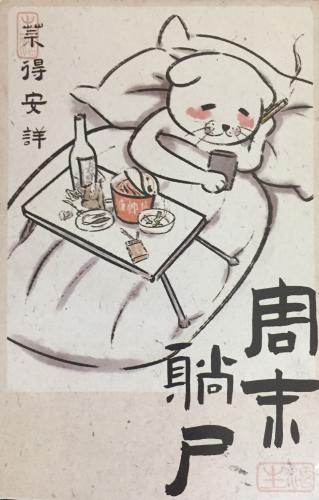 菜得安詳
周末
躺尸